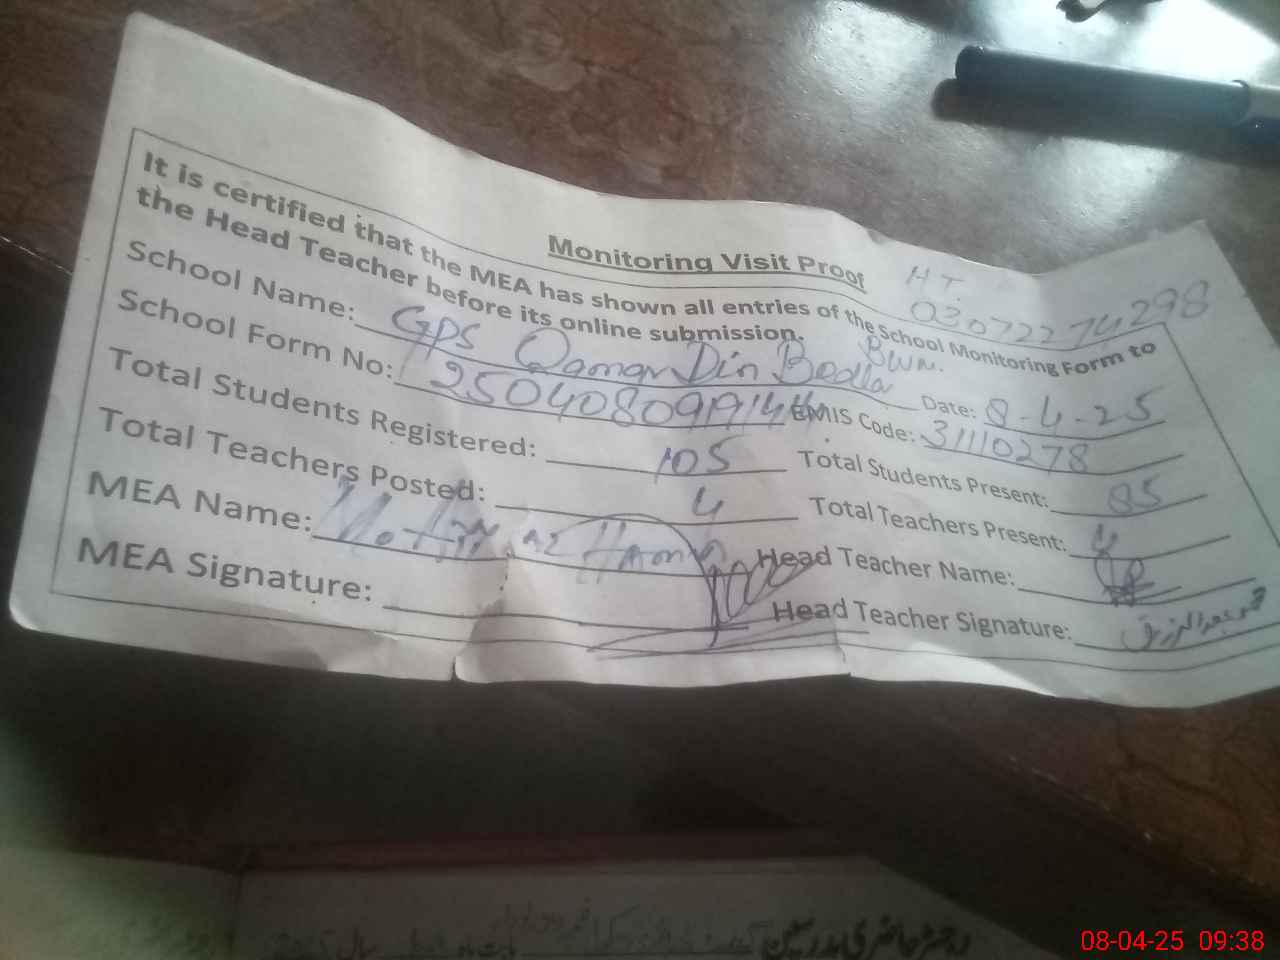 Monitoring Visit Proof
H T.
03072274298
It is certified that the MEA has shown all entries of the School Monitoring Form to
the Head Teacher before its online submission.
School Name: GPS Qamar Din Bodla BWN. Date: 8-4-25
School Form No: 25040809191444 EMIS Code: 31110278
Total Students Registered: 105 Total Students Present: 85
Total Teachers Posted: 4 Total Teachers Present: 4
MEA Name: Head Teacher Name:
MEA Signature: Head Teacher Signature:
رجسٹر حاضری مدرسین
08-04-25 09:38